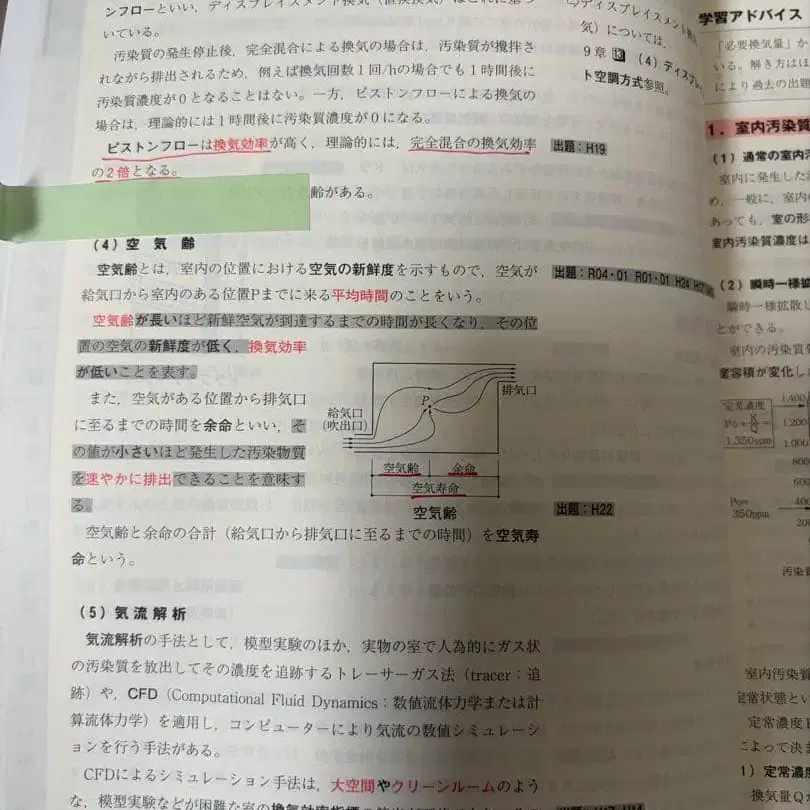 ンフローといい、ディスプレイスメント換気
いている。
汚染質の発生停止後、完全混合による換気の場合は、汚染質が攪拌さ
れながら排出されるため、例えば換気回数1回/hの場合でも1時間後に
汚染質濃度が0となることはない。一方、ピストンフローによる換気の
場合は、理論的には1時間後に汚染質濃度が0になる。
ピストンフローは換気効率が高く、理論的には、完全混合の換気効率
の2倍となる。
出題：H19
齢がある。
(4) 空気齢
空気齢とは、室内の位置における空気の新鮮度を示すもので、空気が
給気口から室内のある位置Pまでに来る平均時間のことをいう。
出題：R04・01 R01・01 H24
空気齢が長いほど新鮮空気が到達するまでの時間が長くなり、その位
置の空気の新鮮度が低く、換気効率
が低いことを表す。
また、空気がある位置から排気口
に至るまでの時間を余命といい、そ
の値が小さいほど発生した汚染物質
を速やかに排出できることを意味す
る。
給気口
(吹出口)
P
排気口
空気齢 余命
空気寿命
空気齢
出題：H22
空気齢と余命の合計（給気口から排気口に至るまでの時間）を空気寿
命という。
(5) 気流解析
気流解析の手法として、模型実験のほか、実物の室で人為的にガス状
の汚染質を放出してその濃度を追跡するトレーサーガス法（tracer：追
跡）や、CFD（Computational Fluid Dynamics：数値流体力学または計
算流体力学）を適用し、コンピューターにより気流の数値シミュレーシ
ョンを行う手法がある。
CFDによるシミュレーション手法は、大空間やクリーンルームのよう
な、模型実験などが困難な室の換気効率指標の
ディスプレイスメント換
気）については、
9章 13 (4) ディスプレ
ト空調方式参照。
学習アドバイス
「必要換気量」か
いる。解き方はほ
により過去の出題
1. 室内汚染質
(1) 通常の室内汚
室内に発生した
め、一般に、室内
あっても、室の形
室内汚染質濃度は
(2) 瞬時一様拡
瞬時一様拡散し
とができる。
室内の汚染質
室容積が変化し
定常濃度
1,350ppm
1,400
1,200
1,000
800
600
400
200
Po=
350ppm
汚染質
室内汚染
定常状態とい
定常濃度
によって決ま
1) 定常濃度
換気量Q